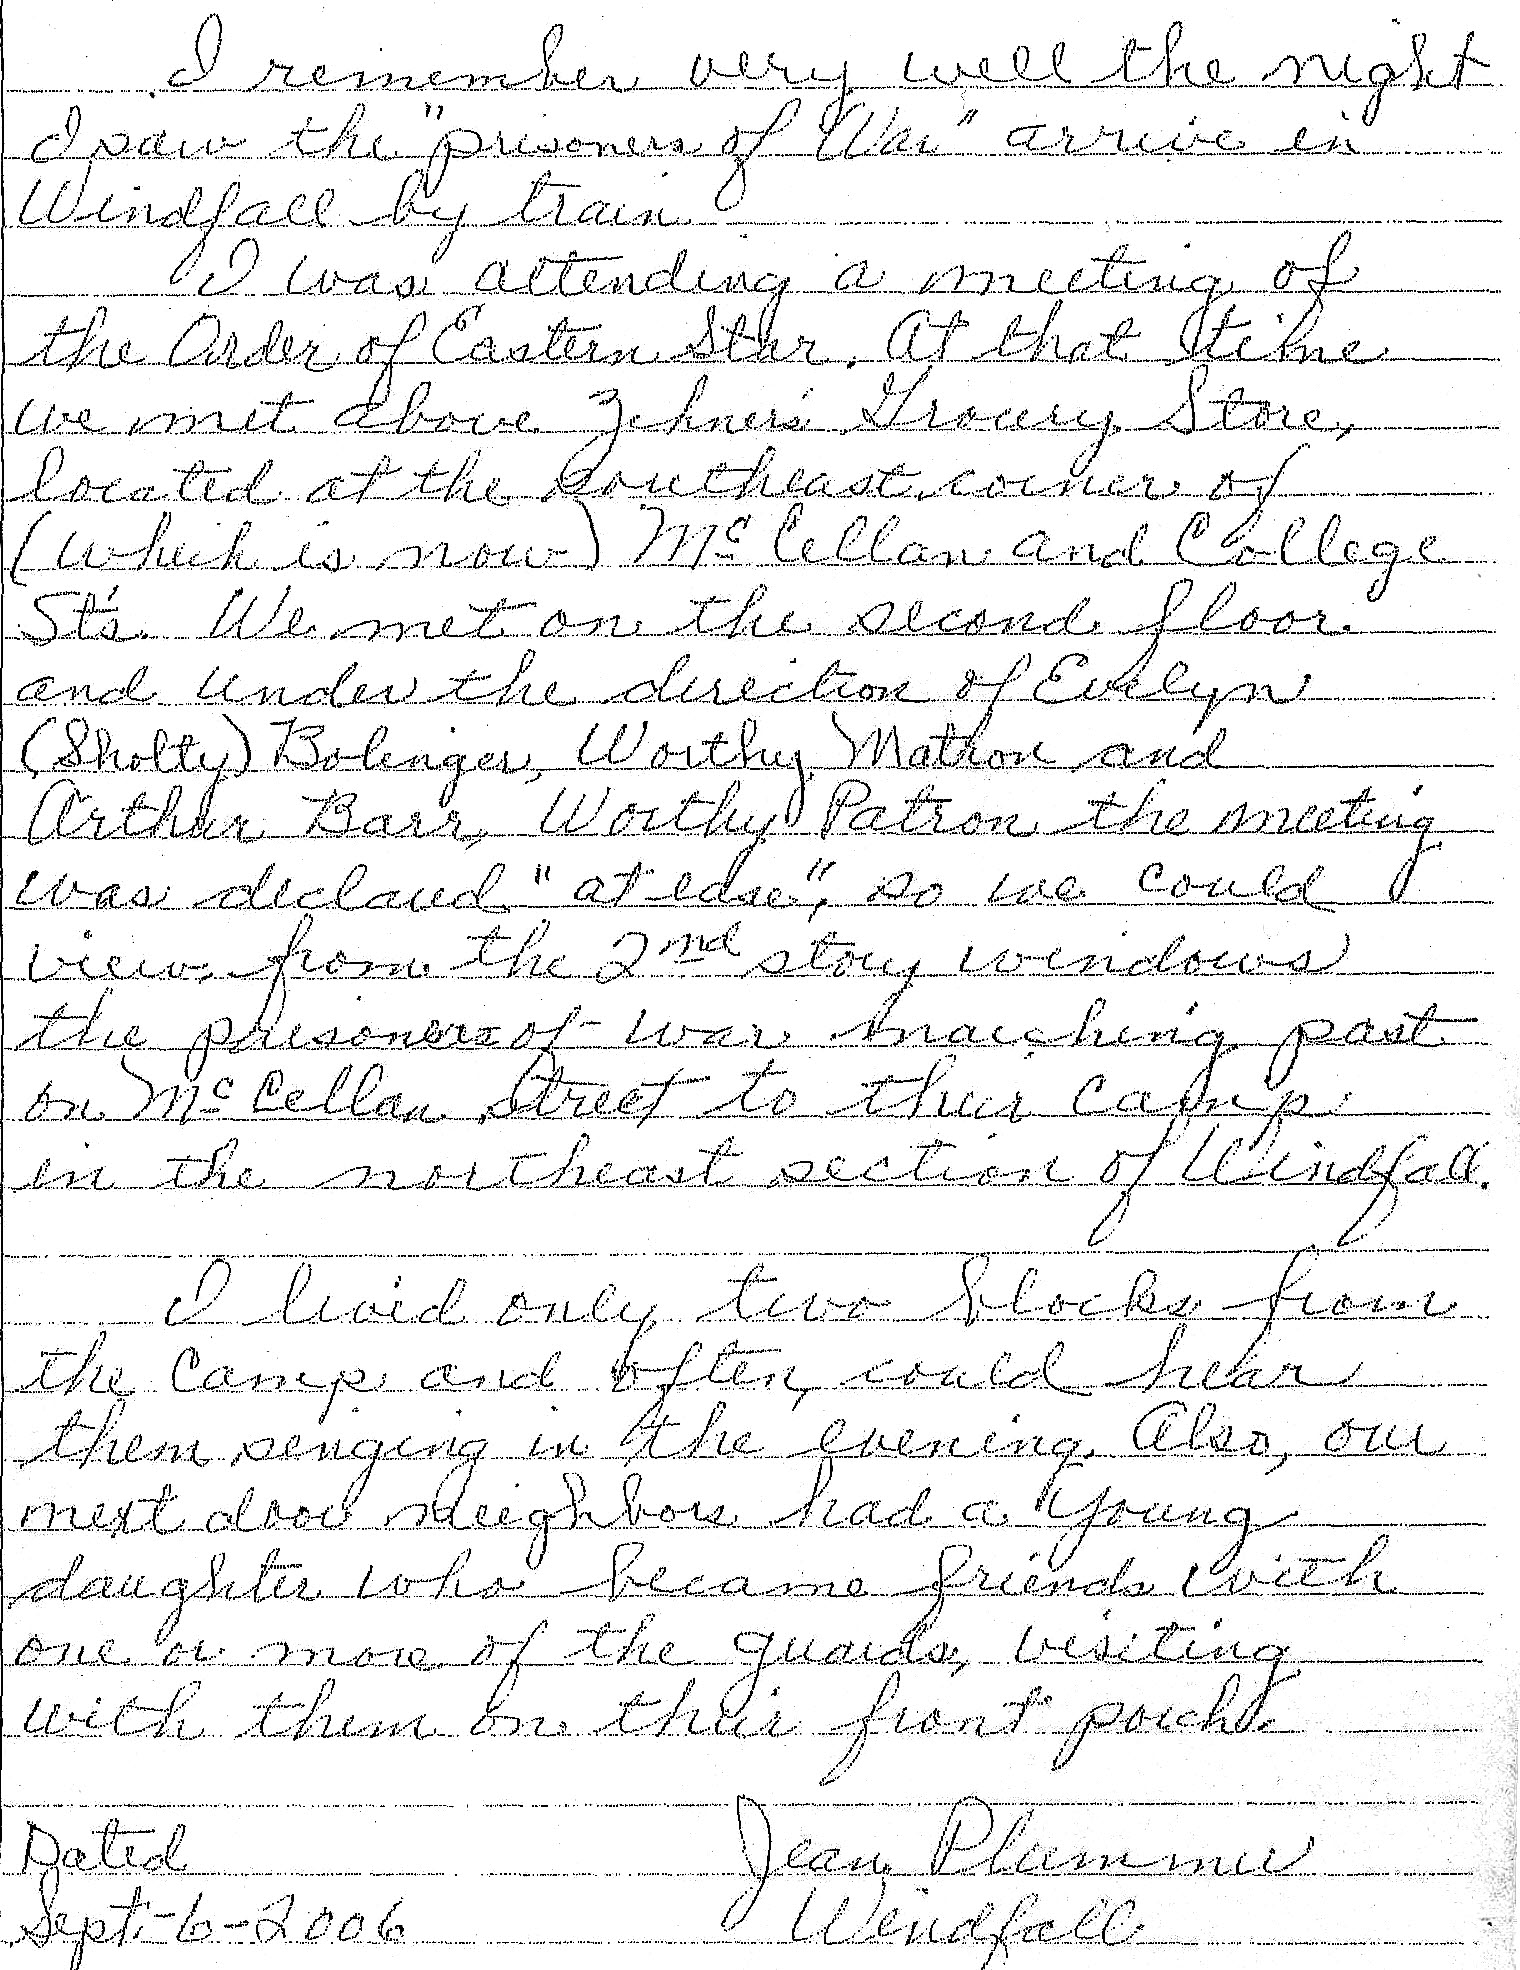 I remember very well the night
I saw the "prisoners of War" arrive in
Windfall by train.
I was attending a meeting of
the Order of Eastern Star. At that time
we met above Zehner's Grocery Store,
located at the southeast corner of
(which is now) McCellan and College
St's. We met on the second floor
and under the direction of Evelyn
(Sholty) Bolinger, Worthy Matron and
Arthur Barr, Worthy Patron the meeting
was declared "at ease", so we could
view from the 2nd story windows
the prisoners of war marching past
on McCellan Street to their camp
in the northeast section of Windfall.
I lived only two blocks from
the camp and often, could hear
them singing in the evening. Also, our
next door neighbors had a young
daughter who became friends with
one or more of the guards, visiting
with them on their front porch.
Dated
Sept-6-2006
Jean Plummer
Windfall